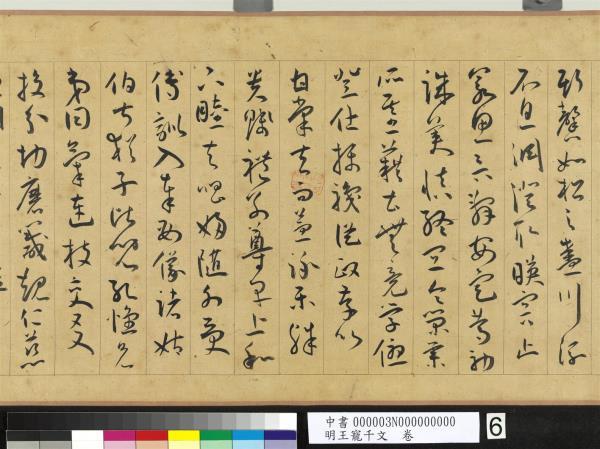 斯馨如松之盛川流
不息淵澄取暎容止
若思言辭安定篤初
誠美慎終宜令榮業
所基藉甚無竟學優
登仕攝職從政存以
甘棠去而益詠樂殊
貴賤禮別尊卑上和
下睦夫唱婦隨外受
傅訓入奉母儀諸姑
伯叔猶子比兒孔懷兄
弟同氣連枝交友
投分切磨箴規仁慈
中書 000003N000000000
明王寵千文 卷
6